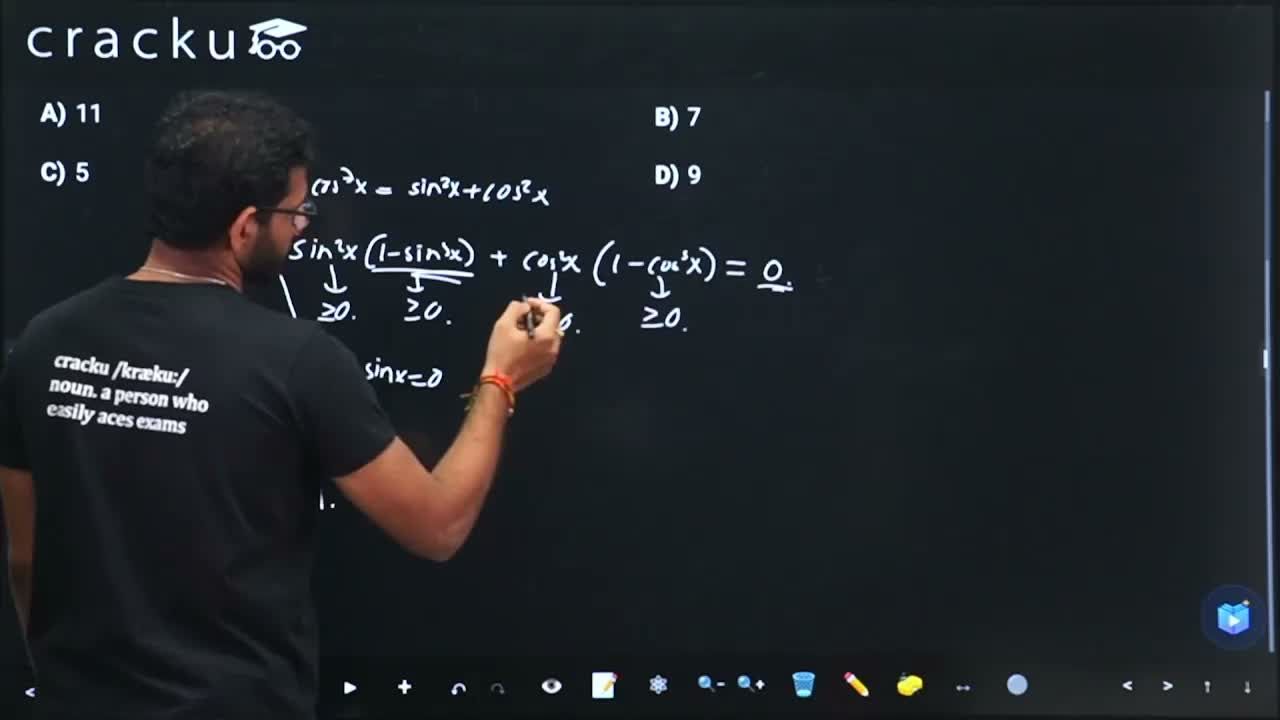 cracku
A) 11
B) 7
C) 5
D) 9
cos⁷x = sin²x + cos²x
sin²x (1 - sin⁵x) + cos²x (1 - cos⁵x) = 0.
≥0. ≥0. 0. ≥0.
sinx = 0
cracku /kræku:/
noun. a person who
easily aces exams